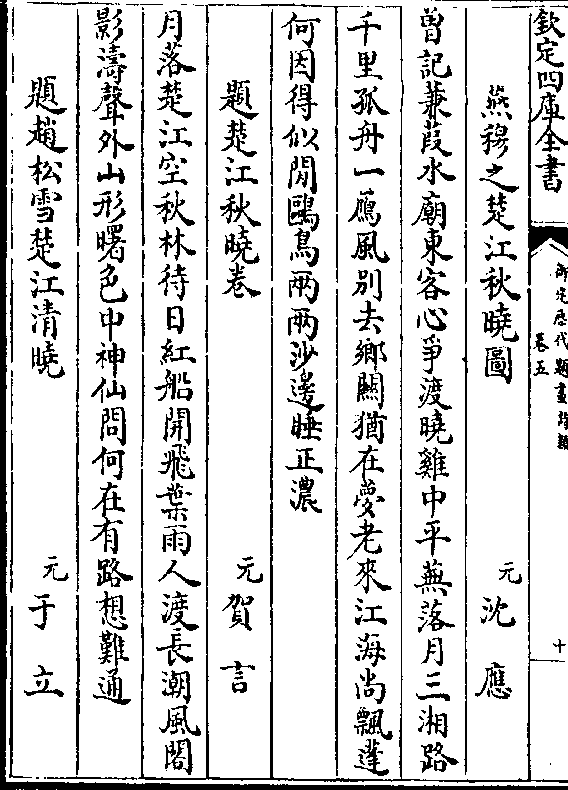 欽定四庫全書
御定歷代題畫詩類
卷五
十
燕穆之楚江秋曉圖
元
沈應
曽記蒹葭水廟東客心爭渡曉雞中平蕪落月三湘路
千里孤舟一鴈風别去鄉關猶在夢老來江海尚飄蓬
何因得似閒鷗鳥兩兩沙邊睡正濃
題楚江秋曉卷
元
賀言
月落楚江空秋林待日紅船開飛葉雨人渡長潮風閣
影濤聲外山形曙色中神仙問何在有路想難通
題趙松雪楚江清曉
元
于立